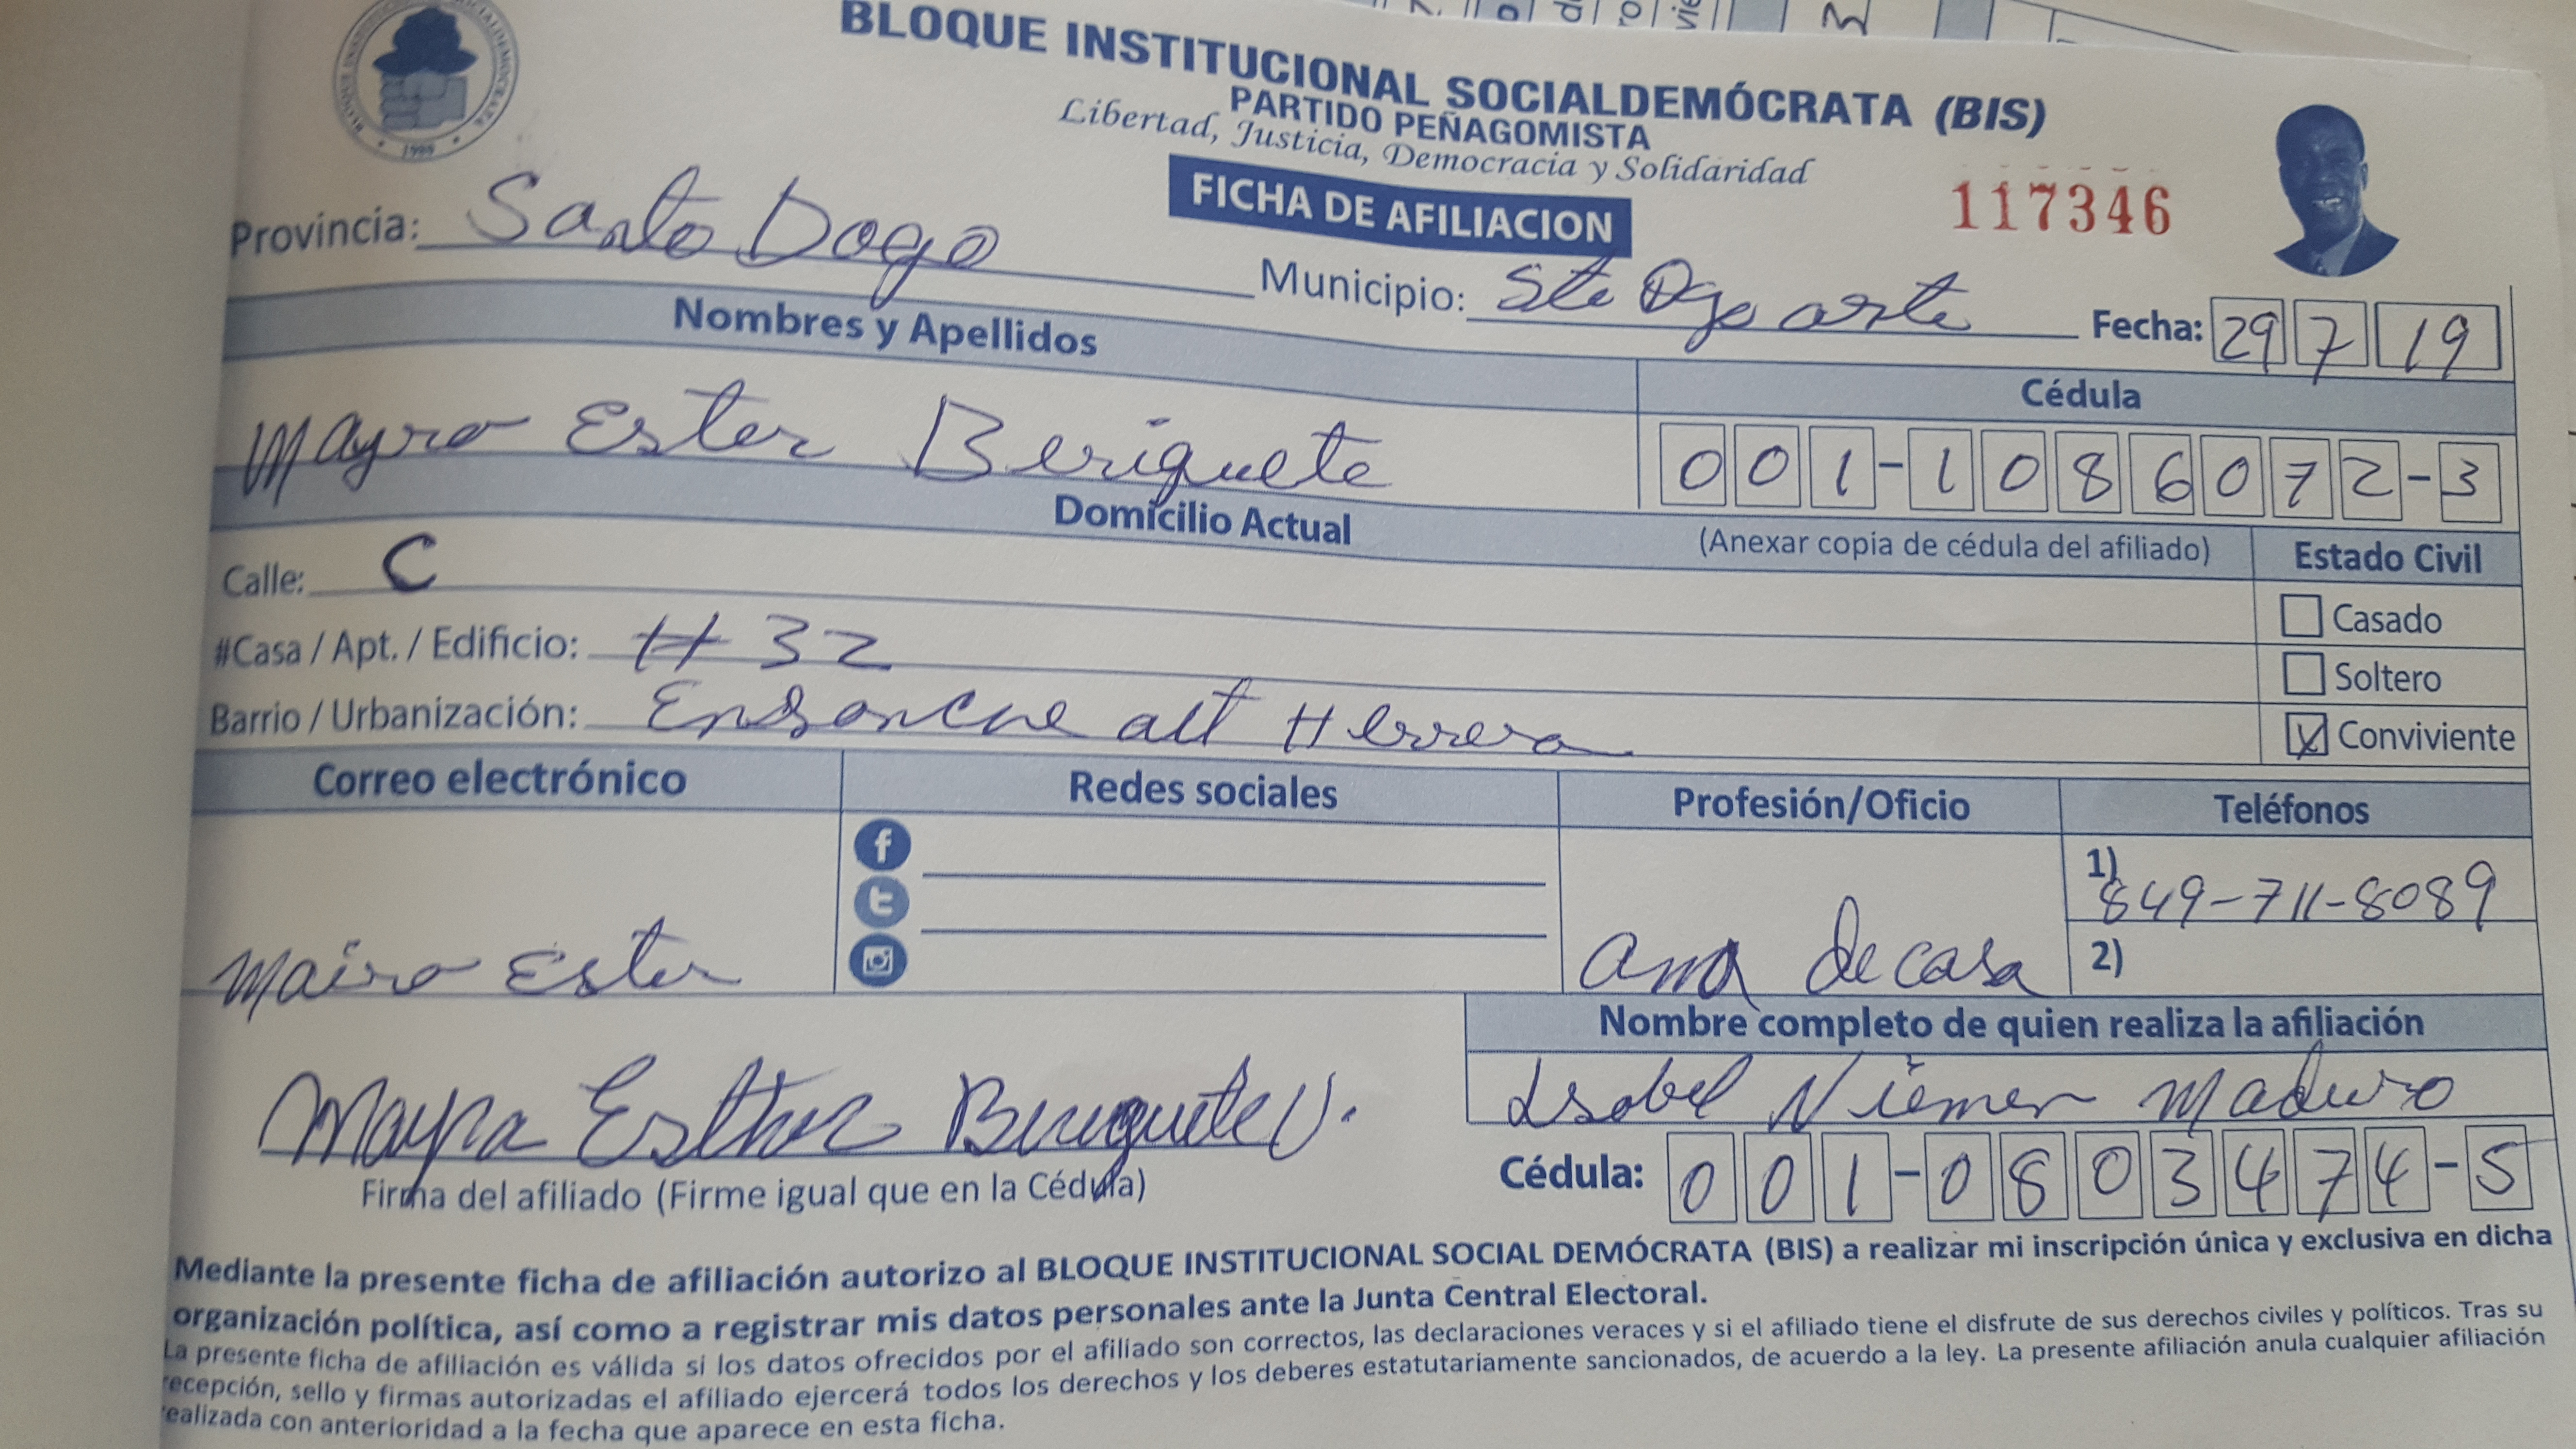 BLOQUE INSTITUCIONAL SOCIALDEMÓCRATA (BIS)
PARTIDO PEÑAGOMISTA
Libertad, Justicia, Democracia y Solidaridad
1999
FICHA DE AFILIACION
117346
Provincia: Santo Dogo
Municipio: Sto Dgo oeste
Fecha: 29 7 19
Nombres y Apellidos
Cédula
Mayra Ester Beriguete
001-1086072-3
Domicilio Actual
(Anexar copia de cédula del afiliado)
Estado Civil
Calle: C
Casado
#Casa / Apt. / Edificio: # 32
Soltero
Barrio / Urbanización: Ensanche alt Herrera
Conviviente
Correo electrónico
Redes sociales
Profesión/Oficio
Teléfonos
1) 849-711-8089
Maira Ester
ama de casa
2)
Nombre completo de quien realiza la afiliación
Isabel Niemen Maduro
Mayra Esther Beriguete U.
Firma del afiliado (Firme igual que en la Cédula)
Cédula: 001-0803474-5
Mediante la presente ficha de afiliación autorizo al BLOQUE INSTITUCIONAL SOCIAL DEMÓCRATA (BIS) a realizar mi inscripción única y exclusiva en dicha
organización política, así como a registrar mis datos personales ante la Junta Central Electoral.
La presente ficha de afiliación es válida si los datos ofrecidos por el afiliado son correctos, las declaraciones veraces y si el afiliado tiene el disfrute de sus derechos civiles y políticos. Tras su
recepción, sello y firmas autorizadas el afiliado ejercerá todos los derechos y los deberes estatutariamente sancionados, de acuerdo a la ley. La presente afiliación anula cualquier afiliación
realizada con anterioridad a la fecha que aparece en esta ficha.